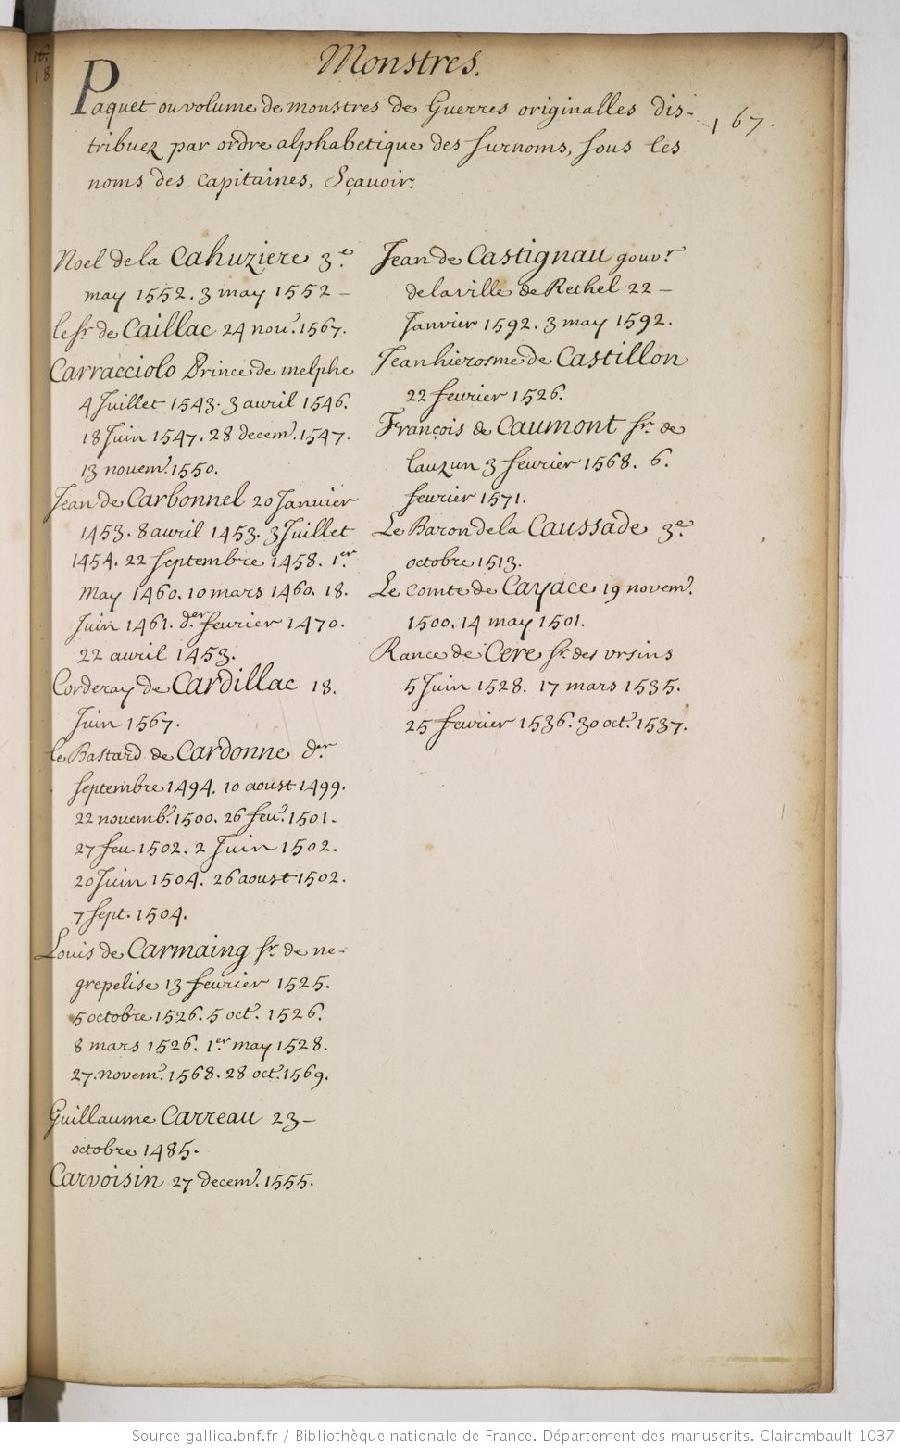 Monstres.
Paquet ou volume de monstres de Guerres originalles dis-
tribuez par ordre alphabetique des surnoms, sous les
noms des capitaines, Sçavoir.
167.
Noel de la Cahuziere 3.e
may 1552. 3 may 1552 –
le sr de Caillac 24 nov.r 1567.
Carracciolo Prince de melphe
4 Juillet 1543. 3 avril 1546.
18 Juin 1547. 28 decem.r 1547.
13 novem.r 1550.
Jean de Carbonnel 20 Janvier
1453. 8 avril 1453. 3 Juillet
1454. 22 septembre 1458. 1.er
may 1460. 10 mars 1460. 18.
Juin 1461. d.er fevrier 1470.
22 avril 1453.
Corderay de Cardillac 18.
Juin 1567.
le Bastard de Cardonne d.er
septembre 1494. 10 aoust 1499.
22 novemb.r 1500. 26 fev.r 1501.
27 feu 1502. 2 Juin 1502.
20 Juin 1504. 26 aoust 1502.
7 sept. 1504.
Louis de Carmaing sr. de ne-
grepelise 13 fevrier 1525.
5 octobre 1526. 5 oct.e 1526.
8 mars 1526. 1.er may 1528.
27. novem.r 1568. 28 oct.e 1569.
Guillaume Carreau 23 –
octobre 1485.
Carvoisin 27 decem.r 1555.
Jean de Castignau gouv.r
de la ville de Rethel 22 –
Janvier 1592. 3 may 1592.
Jean hierosme de Castillon
22 fevrier 1526.
François de Caumont sr. de
lauzun 3 fevrier 1568. 6.
fevrier 1571.
Le Baron de la Caussade 3.e
octobre 1513.
Le comte de Cayace 19 novem.r
1500. 14 may 1501.
Rance de Cere sr. des ursins
5 Juin 1528. 17 mars 1535.
25 fevrier 1536. 30 oct.e 1537.
Source gallica.bnf.fr / Bibliothèque nationale de France. Département des manuscrits. Clairambault 1037